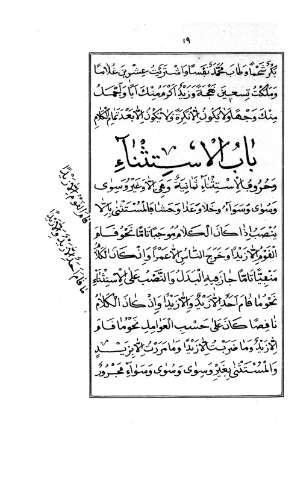 ١٩
بَكْرٌ شَحْمًا وَطَابَ مُحَمَّدٌ نَفْسًا وَاشْتَرَيْتُ عِشْرِينَ غُلَامًا
وَمَلَكْتُ تِسْعِينَ نَعْجَةً وَزَيْدٌ أَكْرَمُ مِنْكَ أَبًا وَأَجْمَلُ
مِنْكَ وَجْهًا وَلَا يَكُونُ إِلَّا نَكِرَةً وَلَا يَكُونُ إِلَّا بَعْدَ تَمَامِ الْكَلَامِ
بَابُ الْاِسْتِثْنَاءِ
وَحُرُوفُ الْاِسْتِثْنَاءِ ثَمَانِيَةٌ وَهِيَ إِلَّا وَغَيْرُ وَسِوَى
وَسُوَى وَسَوَاءٌ وَخَلَا وَعَدَا وَحَاشَا فَالْمُسْتَثْنَى بِإِلَّا
يُنْصَبُ إِذَا كَانَ الْكَلَامُ مُوجَبًا تَامًّا نَحْوُ قَامَ
الْقَوْمُ إِلَّا زَيْدًا وَخَرَجَ النَّاسُ إِلَّا عَمْرًا وَإِنْ كَانَ الْكَلَامُ
مَنْفِيًّا تَامًّا جَازَ فِيهِ الْبَدَلُ وَالنَّصْبُ عَلَى الْاِسْتِثْنَاءِ
نَحْوُ مَا قَامَ أَحَدٌ إِلَّا زَيْدٌ وَإِلَّا زَيْدًا وَإِنْ كَانَ الْكَلَامُ
نَاقِصًا كَانَ عَلَى حَسَبِ الْعَوَامِلِ نَحْوُ مَا قَامَ
إِلَّا زَيْدٌ وَمَا ضَرَبْتُ إِلَّا زَيْدًا وَمَا مَرَرْتُ إِلَّا بِزَيْدٍ
وَالْمُسْتَثْنَى بِغَيْرٍ وَسِوَى وَسُوَى وَسَوَاءٍ مَجْرُورٌ